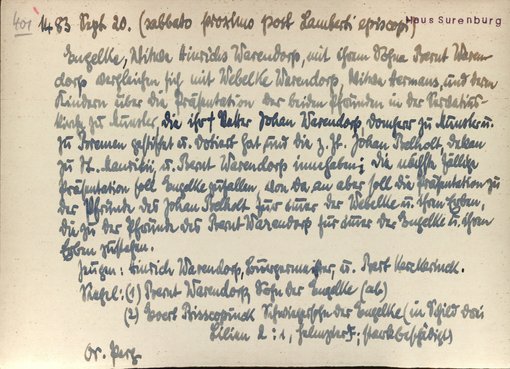 401 1483 Sept. 20. (sabbato proximo post Lamberti episcopi) Haus Surenburg
Engelke, Witwe Hinrichs Warendorp, mit ihrem Sohne Bernt Waren-
dorp vergleichen sich mit Webelke Warendorp, Witwe Hermans, und deren
Kindern über die Präsentation der beiden Pfründen in der Servatius-
kirche zu Münster, die ihr Vetter Johan Warendorp Domherr zu Münster u.
zu Bremen gestiftet u. dotiert hat und die z. Zt. Johan Redholt, Dekan
zu St. Mauritii, u. Bernt Warendorp innehaben; die nächste fällige
Präsentation soll Engelke zufallen, von da an aber soll die Präsentation zu
der Pfründe des Johan Redholt zur immer der Webelke u. ihren Erben,
die zu der Pfründe des Bernt Warendorp zur immer der Engelke u. ihren
Erben zustehen.
Zeugen: Hinrich Warendorp, Bürgermeister, u. Bert Kerkerinck.
Siegel: (1) Bernt Warendorp, Sohn der Engelke (ab)
(2) Evert Bisscopinck Schwiegersohn der Engelke (in Schild drei
Lilien 2:1, Helmzier ; stark beschädigt)
Or. Perg.